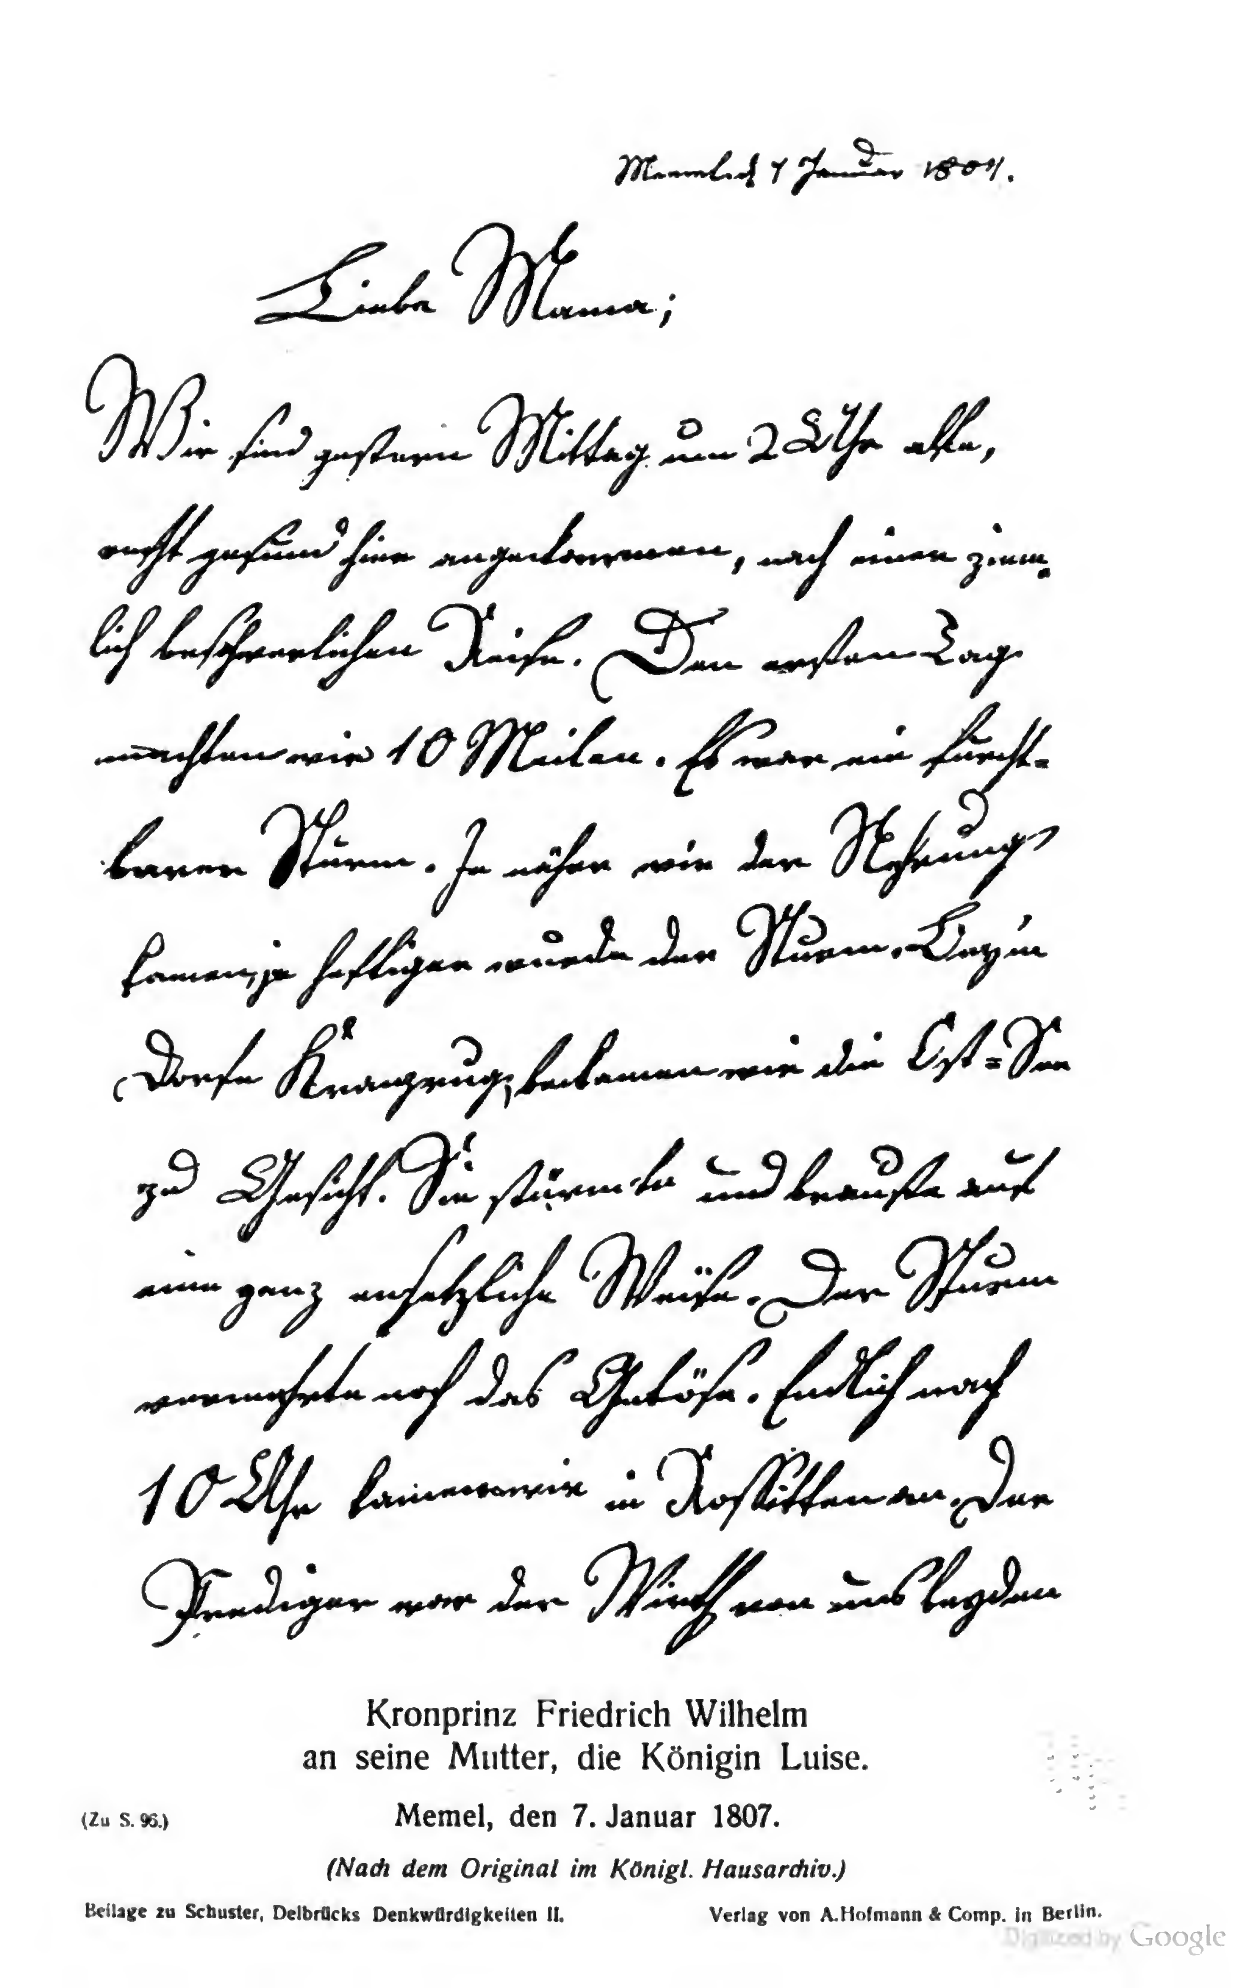 Memel d 7 Januar 1807.
Liebe Mama;
Wir sind gestern Mittag um 2 Uhr alle,
recht gesund hier angekommen, nach einer ziem-
lich beschwerlichen Reise. Den ersten Tag
machten wir 10 Meilen. Es war ein furcht-
barer Sturm. Je näher wir der Nehrung
kamen, je heftiger wurde der Sturm. Beym
Dorfe Kranzrug, bekamen wir die Ost=See
zu Gesicht. Sie stürmte und brauste auf
eine ganz ensetzliche Weise. Der Sturm
vermehrte noch das Getöse. Endlich nach
10 Uhr kamen wir in Rossitten an. Der
Prediger war der Wirth von uns beyden
Kronprinz Friedrich Wilhelm
an seine Mutter, die Königin Luise.
(Zu S. 96.) Memel, den 7. Januar 1807.
(Nach dem Original im Königl. Hausarchiv.)
Beilage zu Schuster, Delbrücks Denkwürdigkeiten II. Verlag von A. Hofmann & Comp. in Berlin.
Digitized by Google